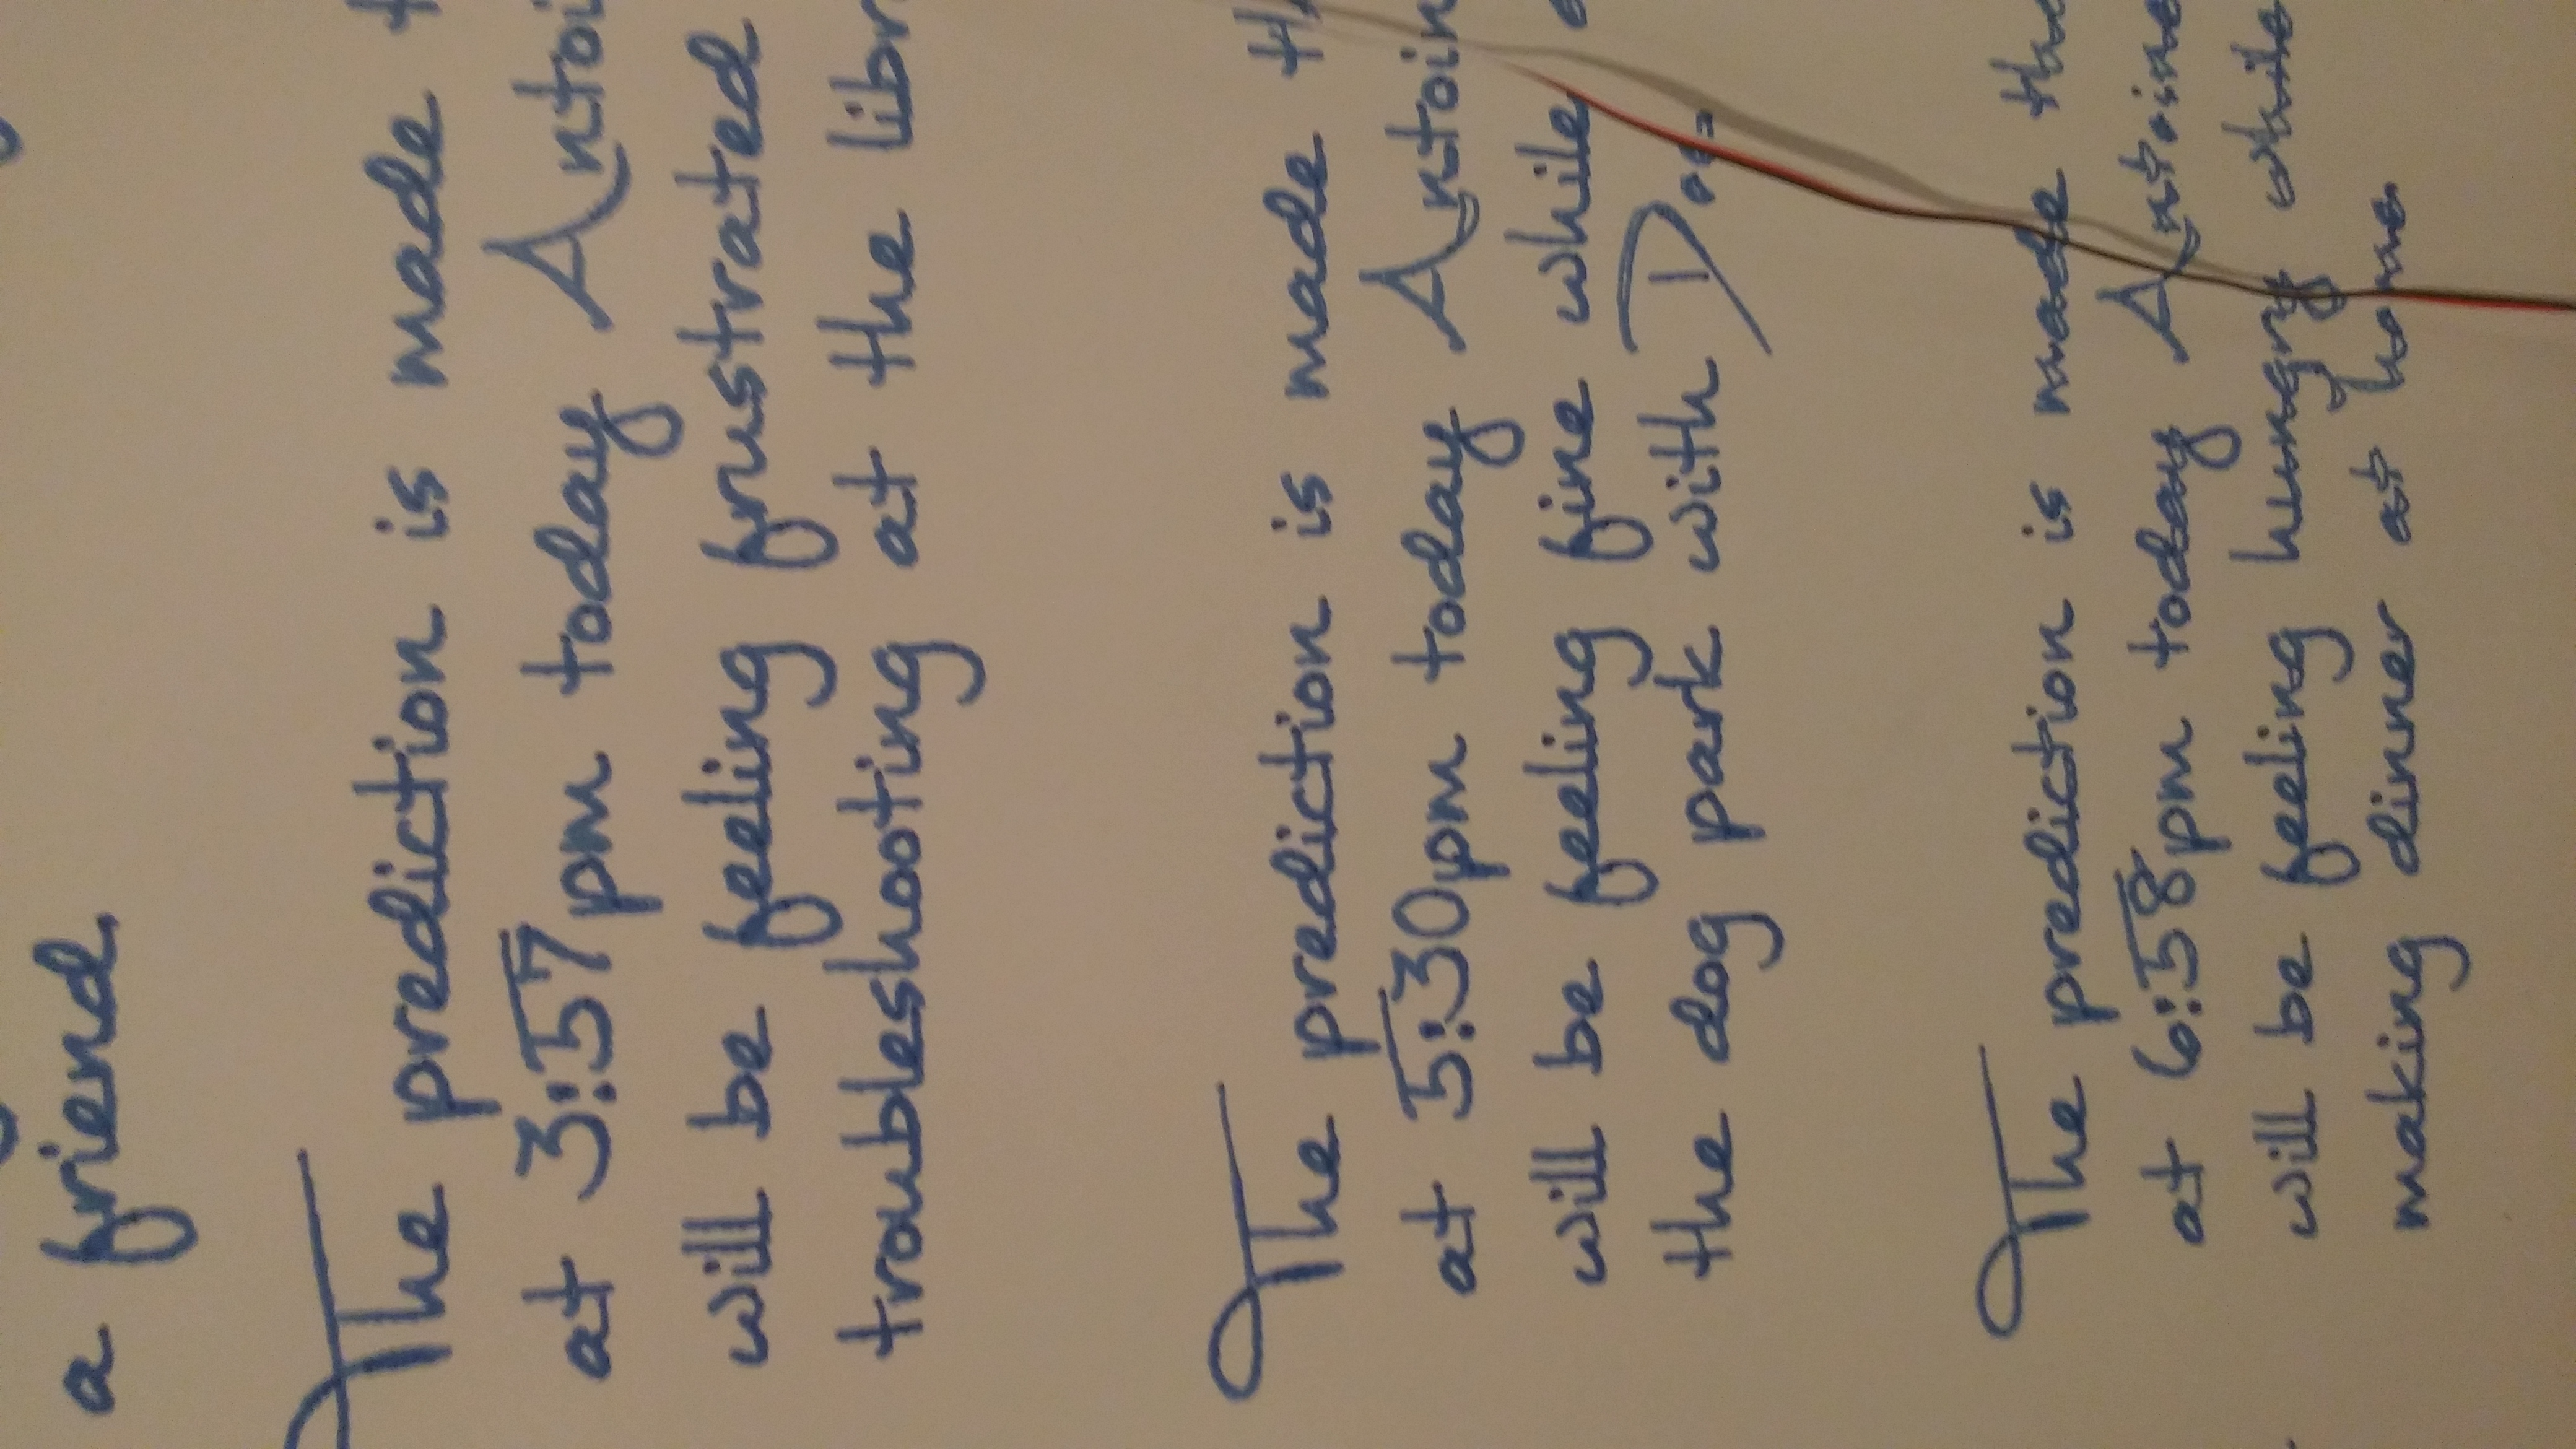 a friend
The prediction is made
at 3:57pm today Antoi
will be feeling frustrated
troubleshooting at the libr
The prediction is made
at 5:30pm today Antoin
will be feeling fine while
the dog park with
The prediction is made tha
at 6:58pm today Antoine
will be feeling hungry while
making dinner at home